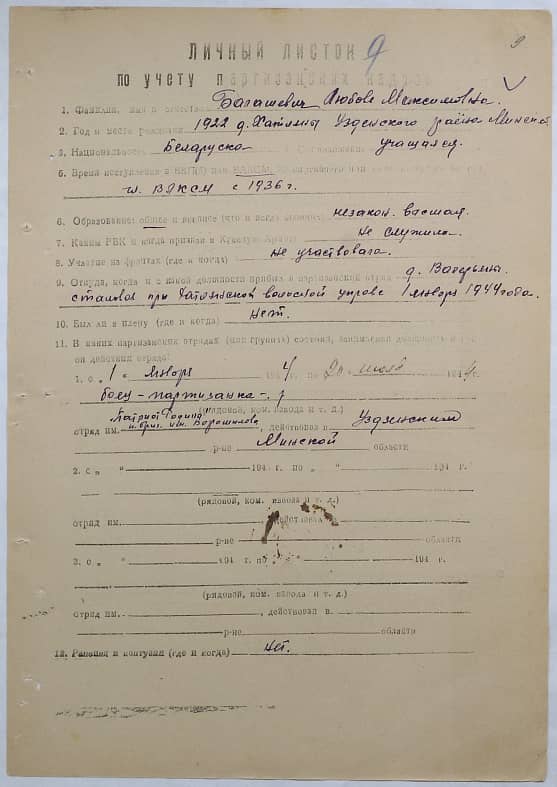 9
9
ЛИЧНЫЙ ЛИСТОК
по учету партизанских кадров
1. Фамилия, имя и отчество Балашевич Любовь Максимовна.
2. Год и место рождения 1922 д. Узденского района Минской
3. Национальность Беларуска учащаяся.
5. Время вступления в ВКП(б) или ВЛКСМ,
чл. ВЛКСМ с 1936 г.
6. Образование: общее и военное (что и когда окончил) незакон. высшая.
7. Каким РВК и когда призван в Красную Армию не служила.
8. Участие на фронтах (где и когда) не участвовала.
9. Откуда, когда и с какой должности прибыл в партизанский отряд д.
при волостной управе 1 января 1944 года.
10. Был ли в плену (где и когда) нет.
11. В каких партизанских отрядах (или группах) состоял, занимаемая должность и
он действия отряда:
1. с „1“ января 1944 г. по 20 июля 1944 г.
боец-партизанка
(рядовой, ком. взвода и т. д.)
"Патриот Родины"
отряд им. бриг. им. Ворошилова, действовал в Узденским
р-не Минской области
2. с „ “ 194 г. по „ “ 194 г.
(рядовой, ком. взвода и т. д.)
отряд им. действовал в
р-не области
3. с „ “ 194 г. по „ “ 194 г.
(рядовой, ком. взвода и т. д.)
отряд им. , действовал в
р-не области
12. Ранения и контузии (где и когда) нет.